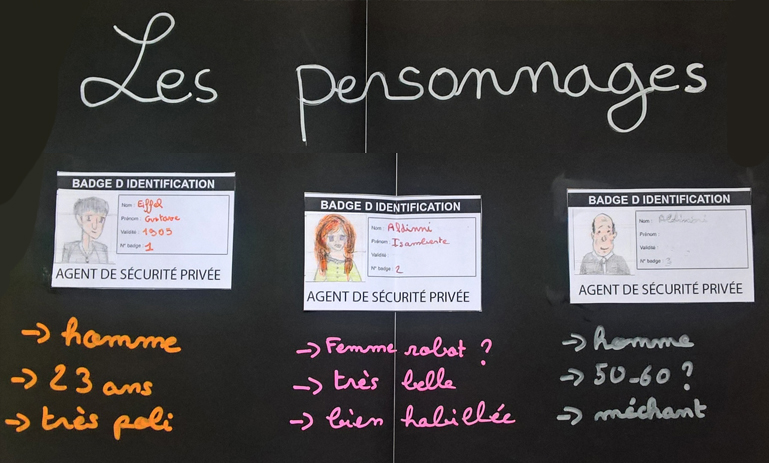 Les personnages
BADGE D IDENTIFICATION
Nom : Eiffel
Prénom : Gustave
Validité : 1905
N° badge : 1
AGENT DE SÉCURITÉ PRIVÉE
→ homme
→ 23 ans
→ très poli
BADGE D IDENTIFICATION
Nom : Aldinni
Prénom : Isambente
Validité
N° badge : 2
AGENT DE SÉCURITÉ PRIVÉE
→ Femme robot ?
→ très belle
→ bien habillée
BADGE D IDENTIFICATION
Nom :
Prénom :
Validité
N° badge : 3
AGENT DE SÉCURITÉ PRIVÉE
→ homme
→ 50-60 ?
→ méchant